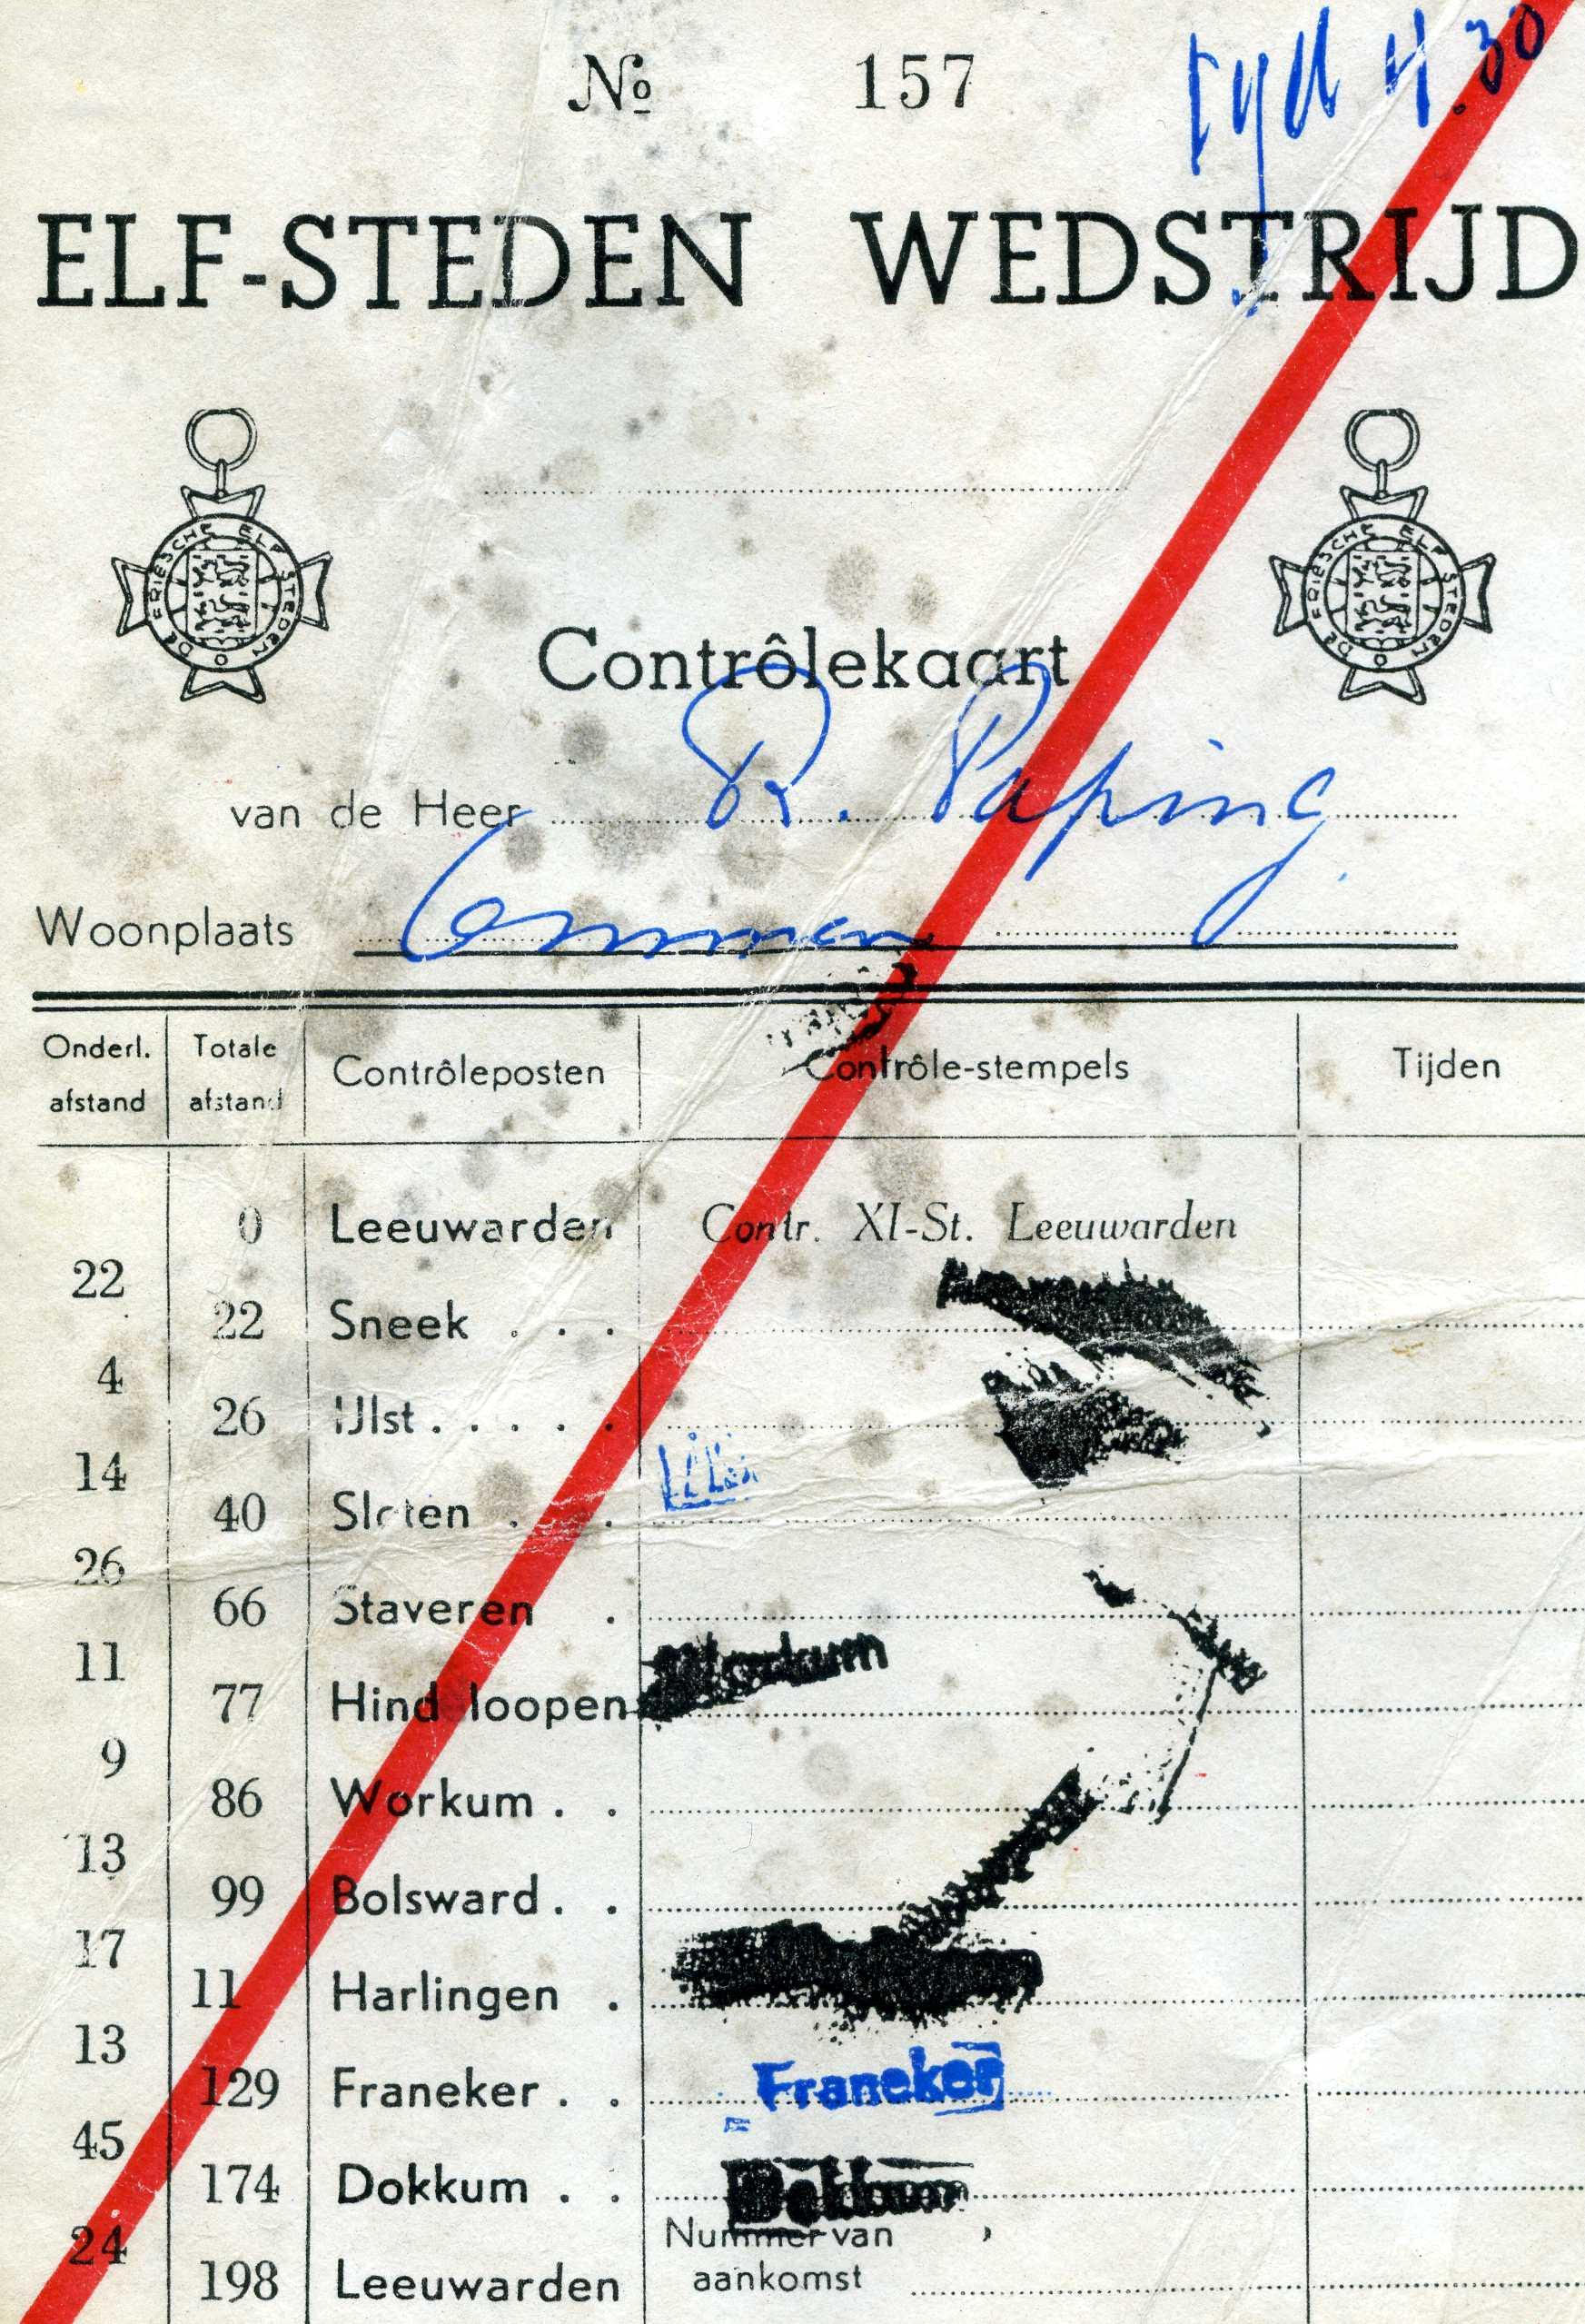 No 157 tyd 4.30
ELF-STEDEN WEDSTRIJD
DE FRIESCHE ELF STEDEN
DE FRIESCHE ELF STEDEN
Contrôlekaart
van de Heer R. Paping
Woonplaats Ommen
Onderl. afstand Totale afstand Contrôleposten Contrôle-stempels Tijden
0 Leeuwarden Contr. XI-St. Leeuwarden
22
22 Sneek . . .
4
26 IJlst . . . . .
14
40 Sloten . .
26
66 Staveren .
11
Workum
77 Hindeloopen
9
86 Workum . .
13
99 Bolsward . .
17
11 Harlingen .
13
129 Franeker . . Franeker
45
174 Dokkum . . Dokkum
24
Nummer van
198 Leeuwarden aankomst